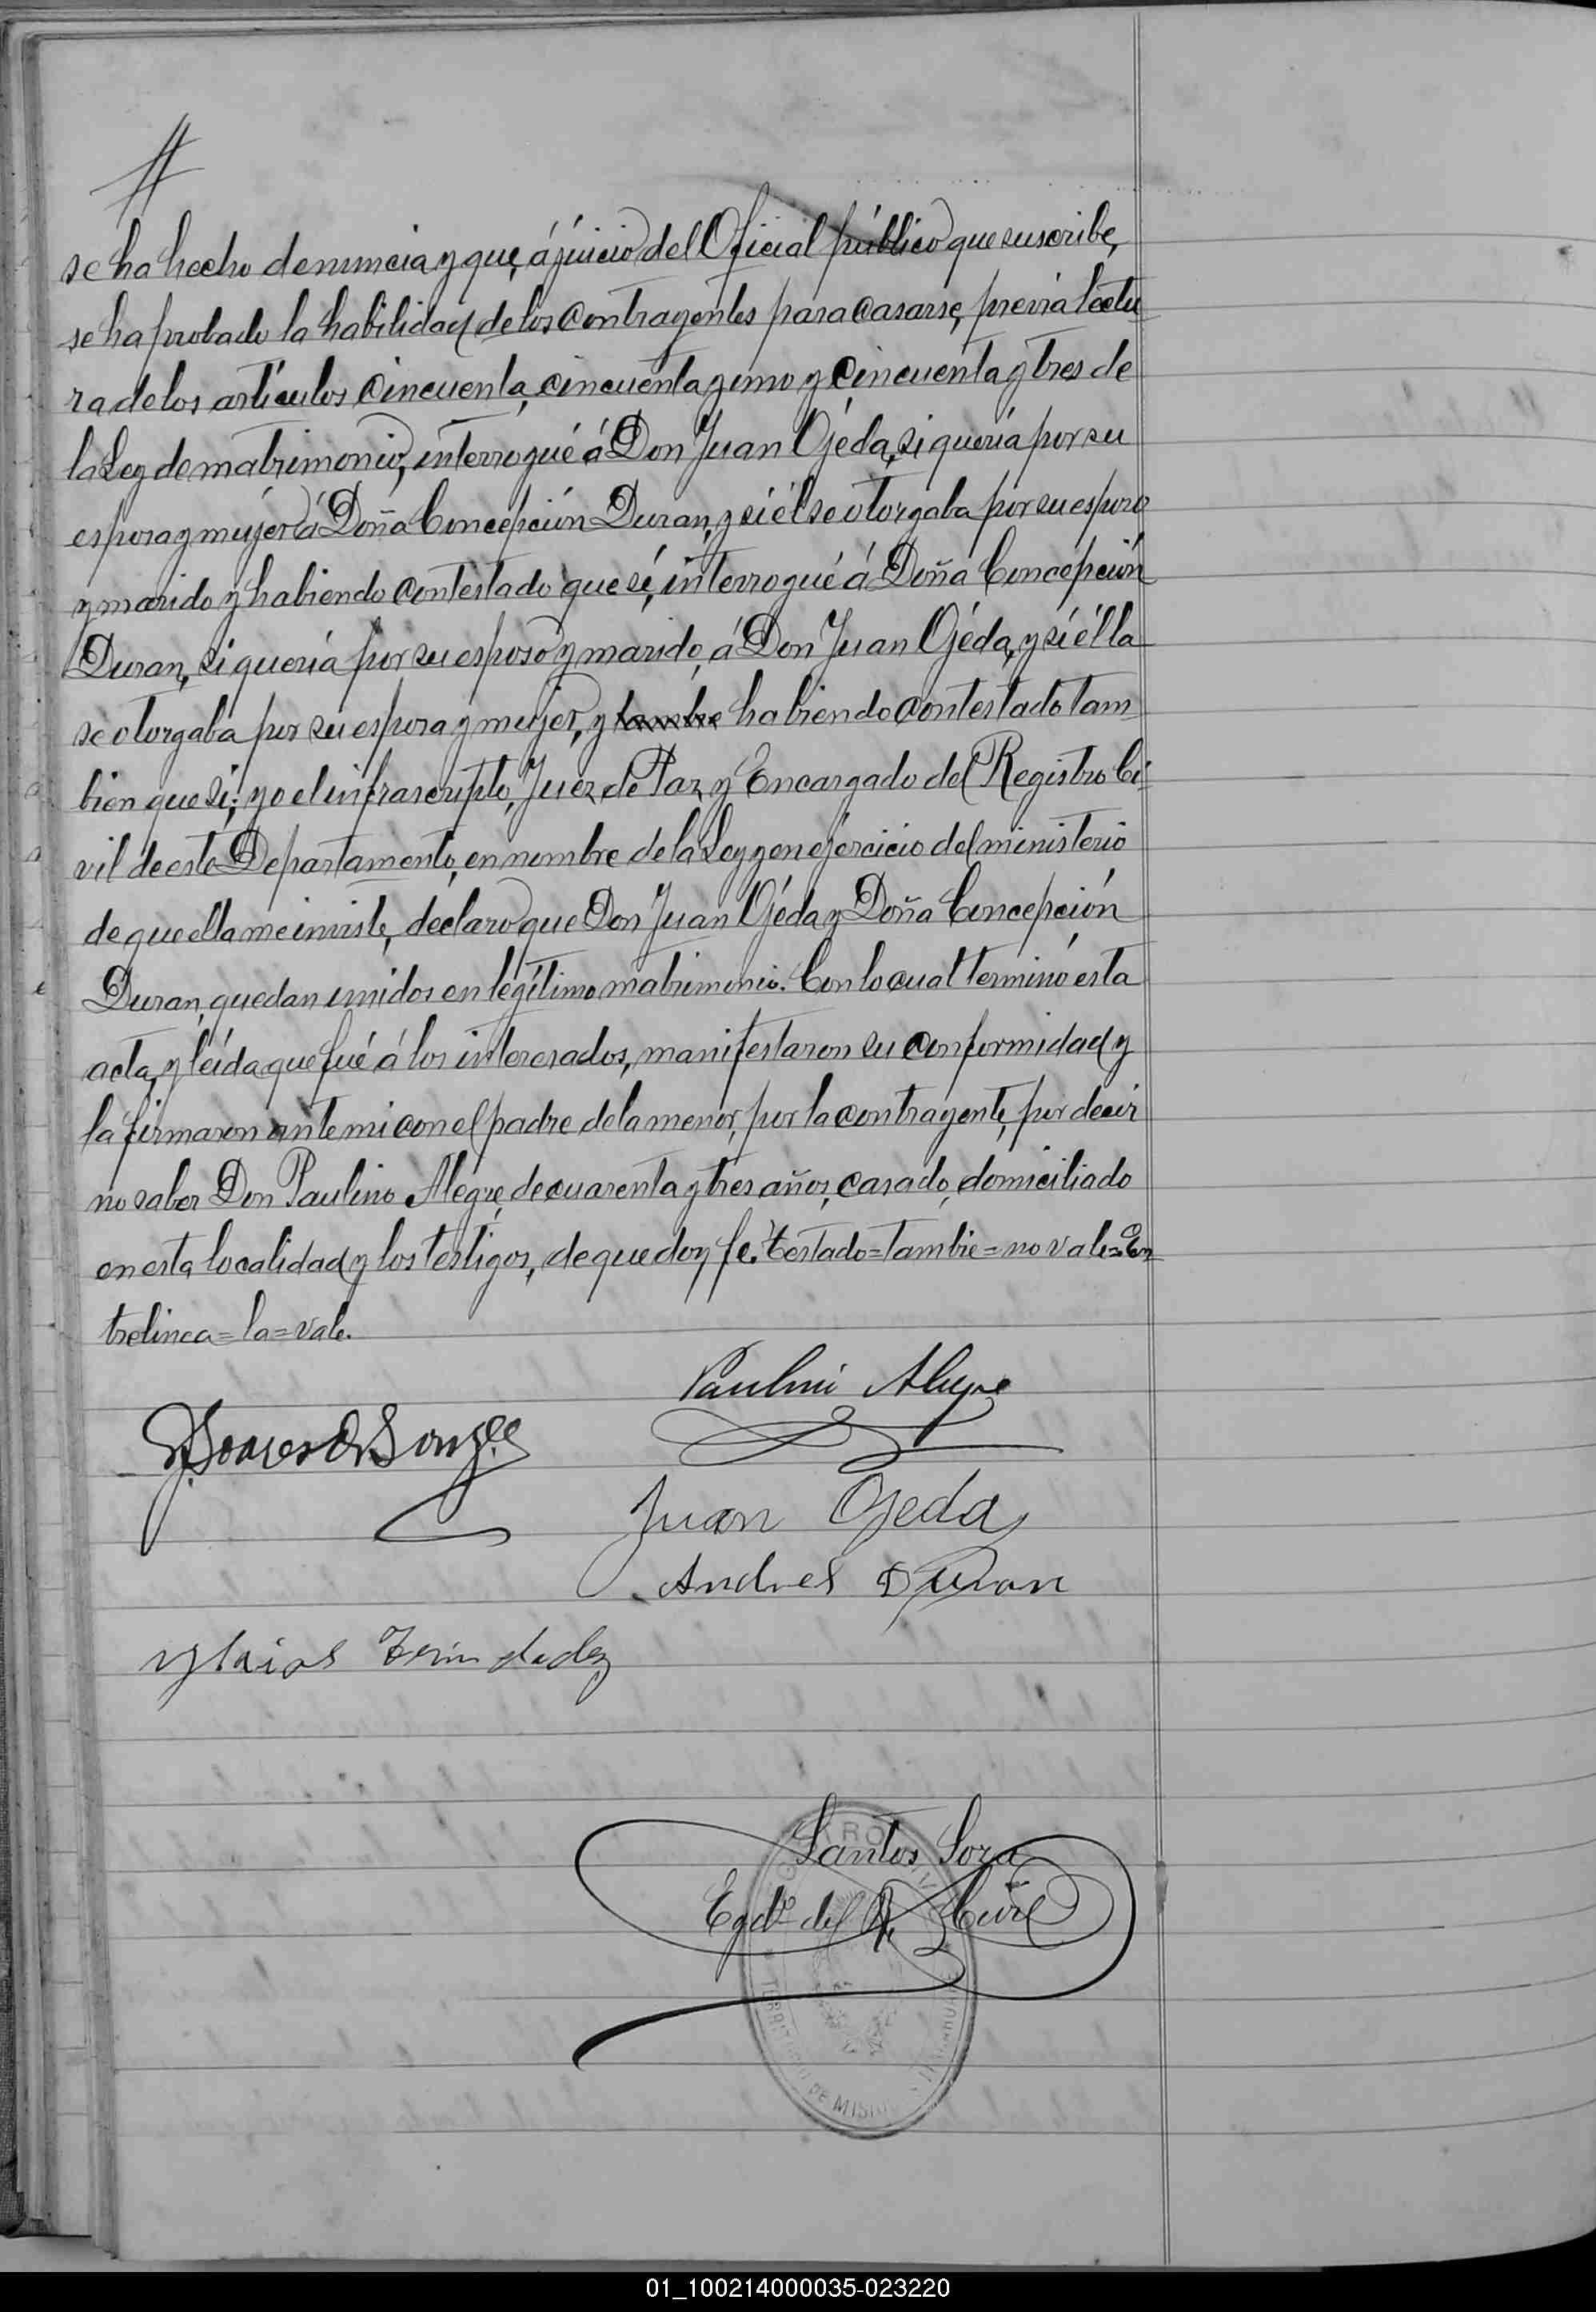 se ha hecho denuncia y que, á juicio del Oficial público que suscribe,
se ha probado la habilidad de los contrayentes para casarse, previa lectu
ra de los artículos cincuenta, cincuenta y uno y cincuenta y tres de
la Ley de matrimonio, interrogué á Don Juan Ojéda, si quería por su
esposa y mujer á Doña Concepción Duran, y si él se otorgaba por su esposo
y marido y habiendo contestado que sí, interrogué á Doña Concepción
Duran, si quería por su esposo y marido, á Don Juan Ojéda, y si élla
se otorgaba por su esposa y mujer, y tambie habiendo contestado tam
bien que si; yo el infrascripto, Juez de Paz y Encargado del Registro Ci
vil de este Departamento, en nombre de la Ley y en ejercicio del ministerio
de que ella me inviste, declaro que Don Juan Ojéda y Doña Concepción
Duran, quedan unidos en legítimo matrimonio. Con lo cual terminó esta
acta, y leída que fué á los interesados, manifestaron su conformidad y
la firmaron ante mi con el padre de la menor, por la contrayente, por decir
no saber Don Paulino Alegre, de cuarenta y tres años, casado, domiciliado
en esta localidad y los testigos, de que doy fe. Testado=tambie=no vale=En
trelinea=la=vale.
Paulino Alegre
Juan Ojeda
Andres Duran
Santos Sora
Egdo. del R. Civil
TERRITORIO DE MISIONES
01_100214000035-023220